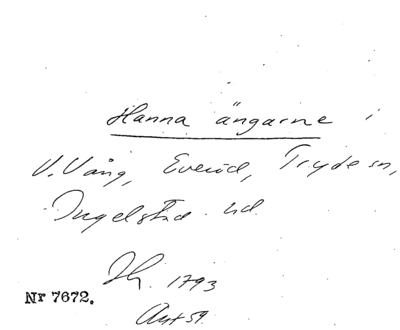 Hanna ängarne i
V. Vång, Everöd, Tryde sn,
Ingelstad hd.
1793
Nr 7672.